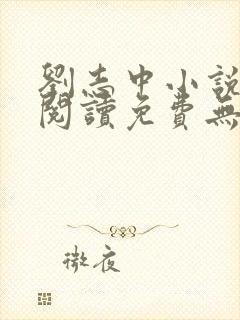 劉志中小說
閱讀免費無
微夜